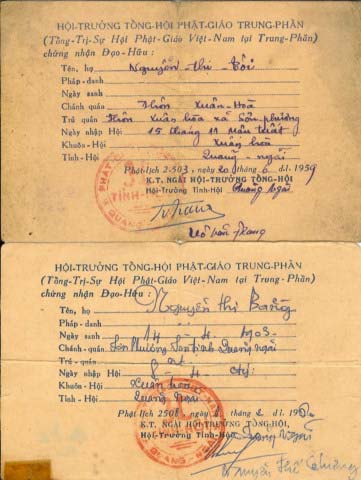 HỘI-TRƯỞNG TỔNG-HỘI PHẬT-GIÁO TRUNG-PHẦN
(Tổng-Trị-Sự Hội Phật-Giáo Việt-Nam tại Trung-Phần)
chứng nhận Đạo-Hữu :
Tên, họ Nguyễn thị Tôi
Pháp-danh
Ngày sanh
Chánh quán Thôn Xuân-Hoà
Trú quán Thôn Xuân hòa xã Sơn phương
Ngày nhập Hội 15 tháng 11 Mậu tuất
Khuôn-Hội Xuân hòa
Tỉnh-Hội Quảng-ngãi
Phật-lịch 2.503, ngày 20 6 d.l. 1959
K.T. NGÀI HỘI-TRƯỞNG TỔNG-HỘI
Hội-Trưởng Tỉnh-Hội Quảng Ngãi
HỘI-TRƯỞNG TỔNG-HỘI PHẬT-GIÁO TRUNG-PHẦN
(Tổng-Trị-Sự Hội Phật-Giáo Việt-Nam tại Trung-Phần)
chứng nhận Đạo-Hữu :
Tên, họ Nguyễn thị
Pháp-danh
Ngày sanh 14 - 4
Chánh-quán Quảng Ngãi
Trú-quán
Ngày nhập Hội 8 - 4
Khuôn-Hội Xuân hòa
Tỉnh-Hội Quảng Ngãi
Phật-lịch d.l.
K.T. NGÀI HỘI-TRƯỞNG TỔNG-HỘI
Hội-Trưởng Tỉnh-Hội Quảng Ngãi
Nguyễn